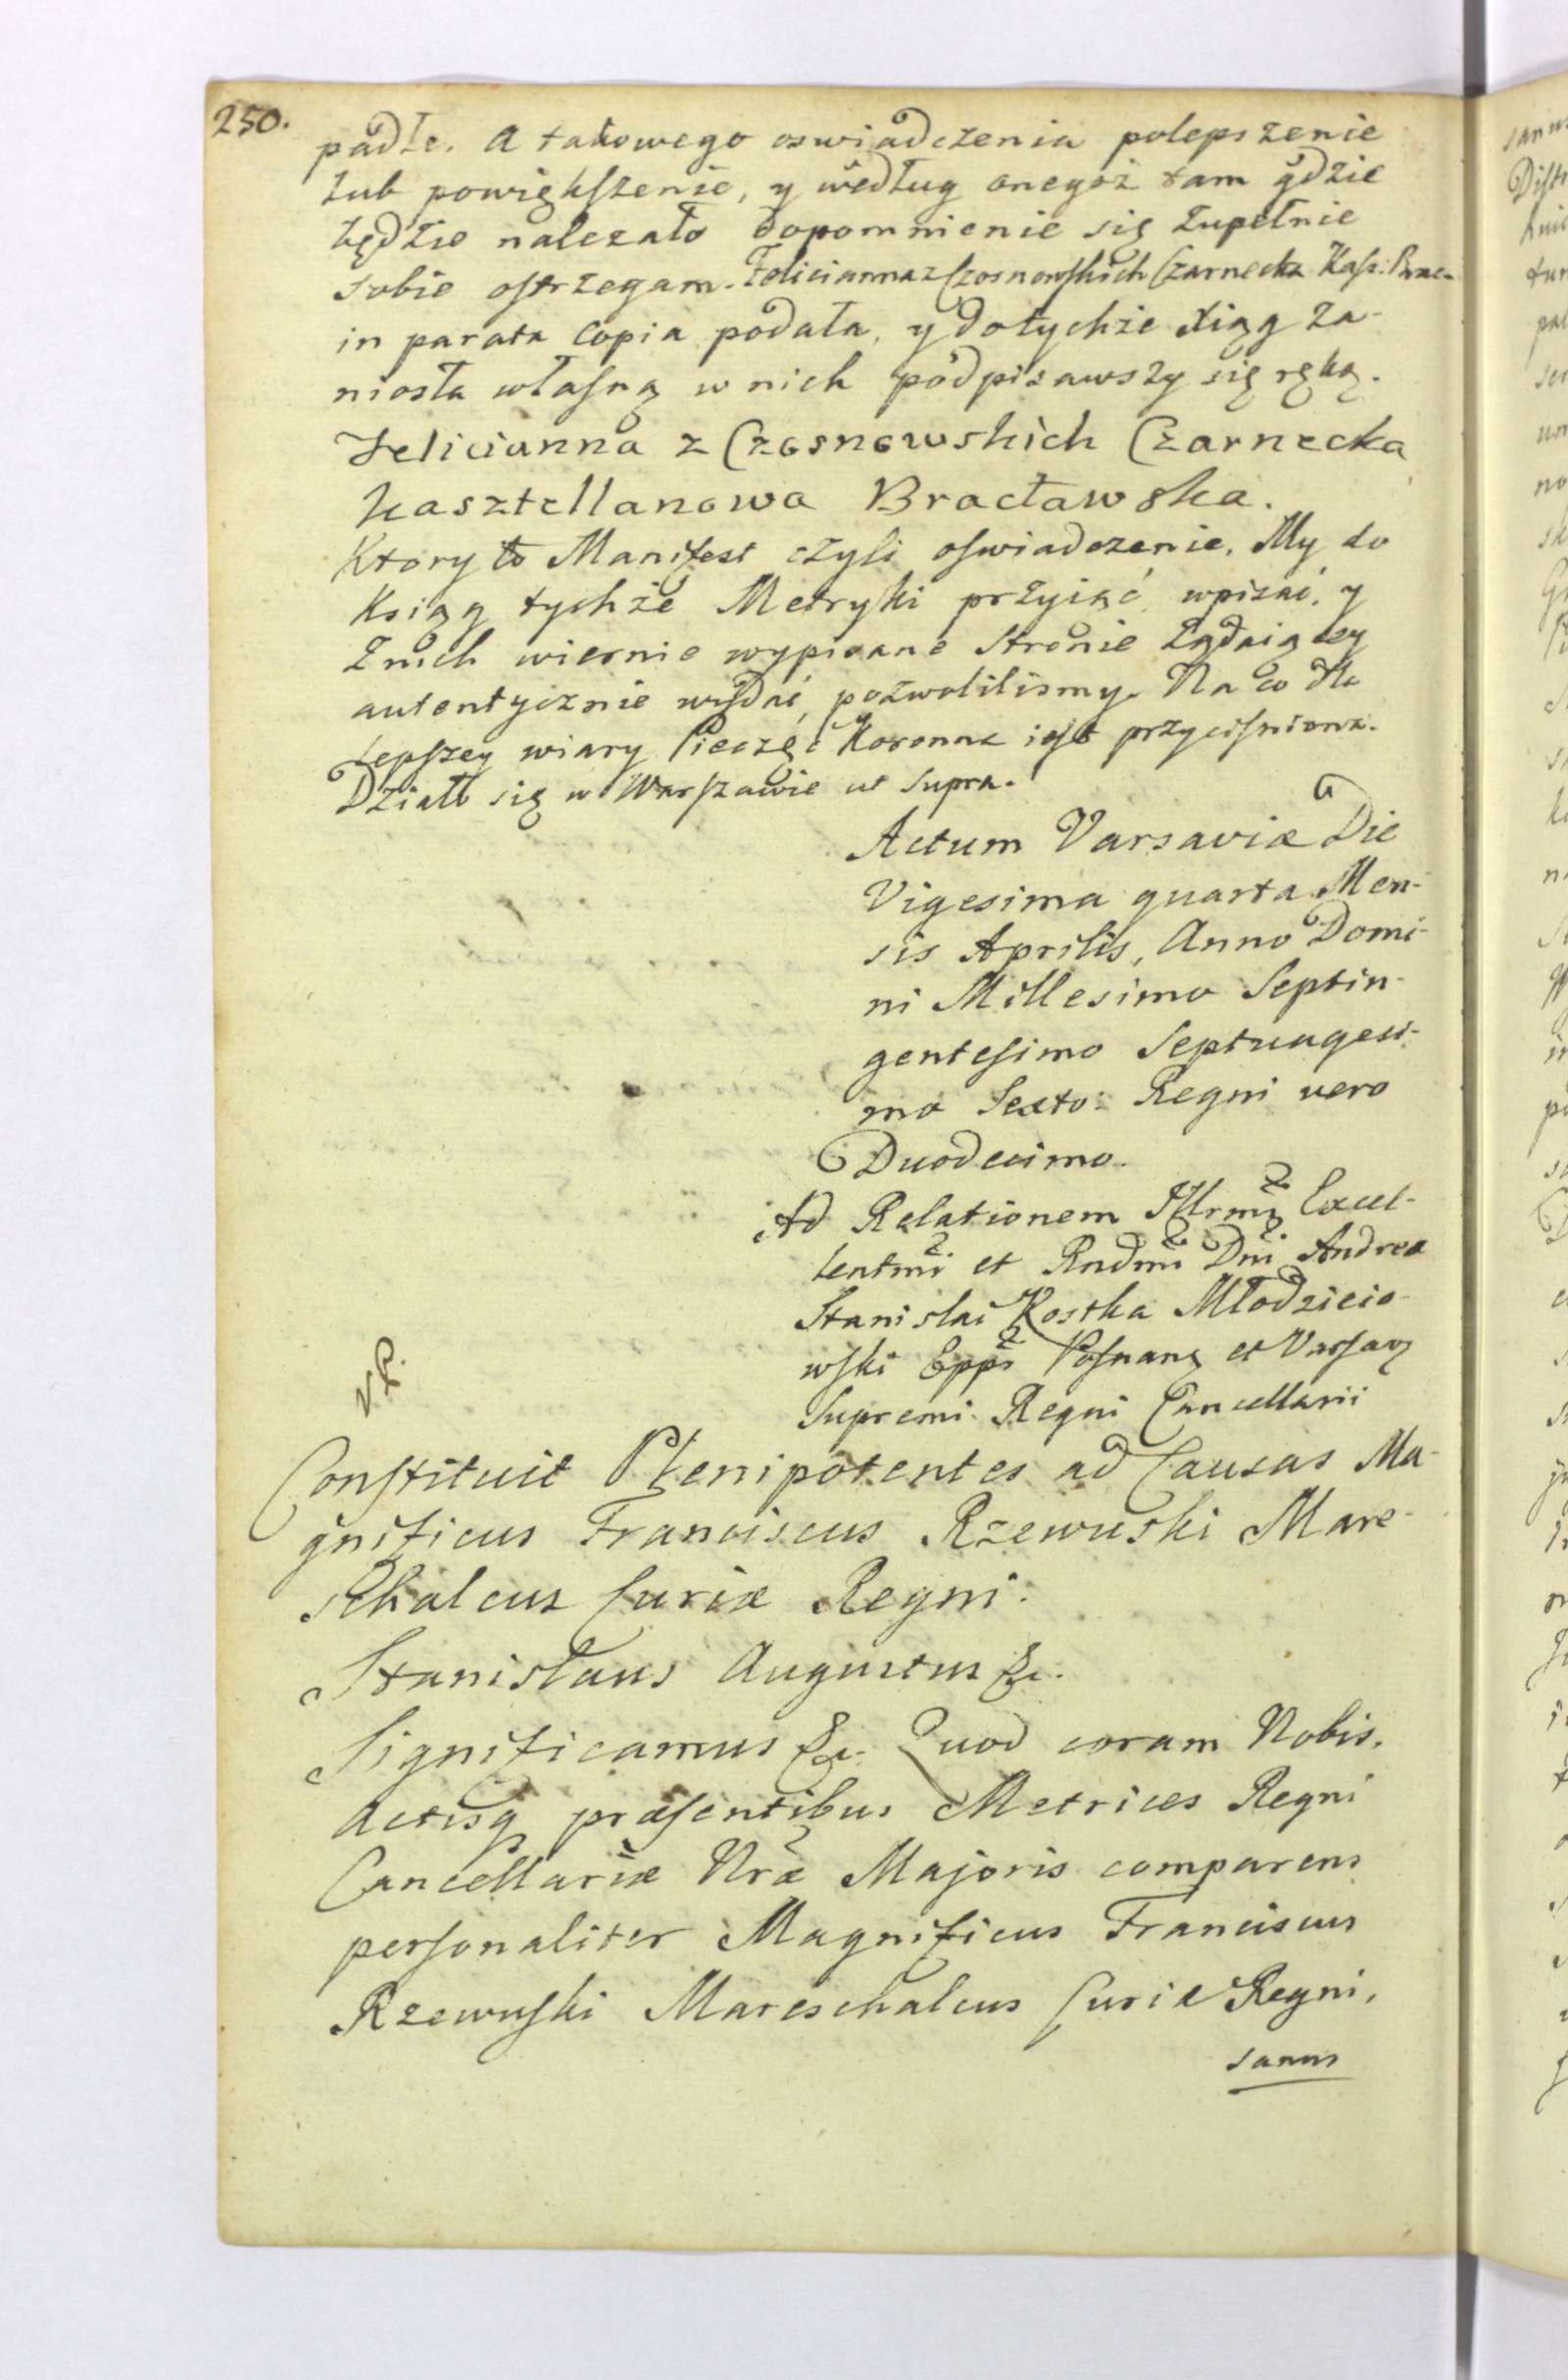 250.
padłe. A takowego oswiadczenia polepszenie
lub powiększenie, y według onegoż tam gdzie
będzie należało dopomnienie się zupełnie
sobie ostrzegam. Felicianna z Czosnowskich Czarnecka Kasz: Brac-
in parata Copia podała, y do tychże Xiąg za-
niosła własną w nich podpisawszy się ręką.
Felicianna z Czosnowskich Czarnecka
kasztellanowa Bracławska.
Ktory to Manifest czyli oswiadczenie, My do
Ksiąg tychże Metryki przyiąć, wpisać, y
z nich wiernie wypisane Stronie żądaiącey
autentycznie wydać, pozwolilismy. Na co dla
lepszey wiary Pieczęć Koronna iest przycisniona.
Działo się w Warszawie ut Supra.
Actum Varsaviæ Die
Vigesima quarta Men-
sis Aprilis, Anno Domi-
ni Millesimo Septin-
gentesimo Septuagesi-
mo Sexto: Regni vero
Duodecimo.
Ad Relationem Illrmi Excel-
lentmi et Rndmi Dni Andreæ
Stanislai Kostka Młodzieio-
wski Eppi Posnan et Varsav
Supremi Regni Cancellarii
Constituit Plenipotentes ad Causas Ma-
gnificus Franciscus Rzewuski Mare-
schalcus Curiæ Regni.
Stanislaus Augustus &c.
Significamus &c. Quod coram Nobis,
Actisq præsentibus Metrices Regni
Cancellariæ Nræ Majoris comparens
personaliter Magnificus Franciscus
Rzewuski Mareschalcus Curiæ Regni,
sanus